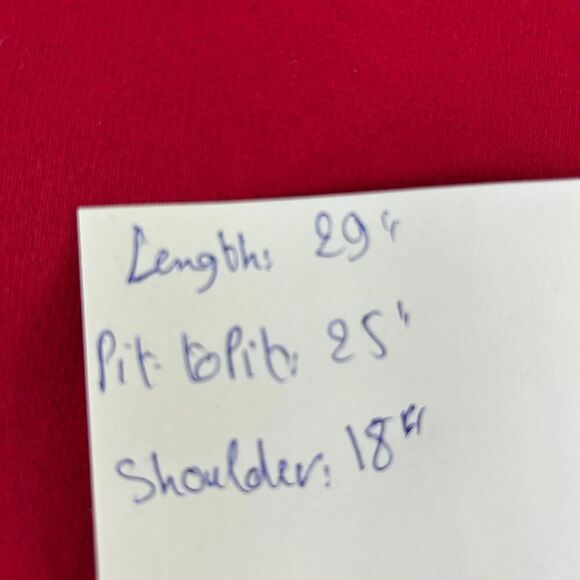 Length: 29"
Pit to Pit: 25"
Shoulder: 18"